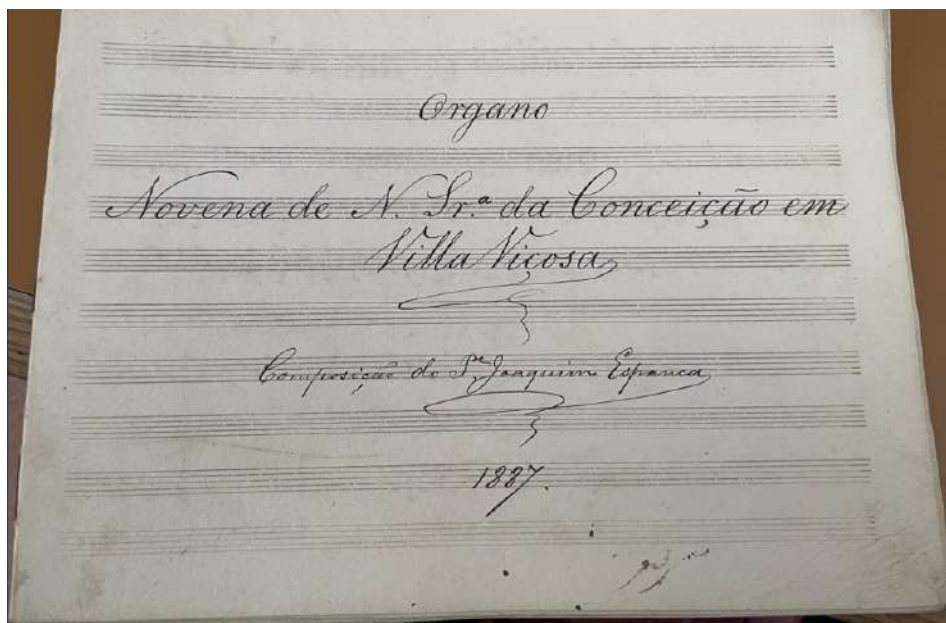 Organo
Novena de N. Sr.ª da Conceição em
Villa Viçosa
Composição do P.e Joaquim Espanca
1887.